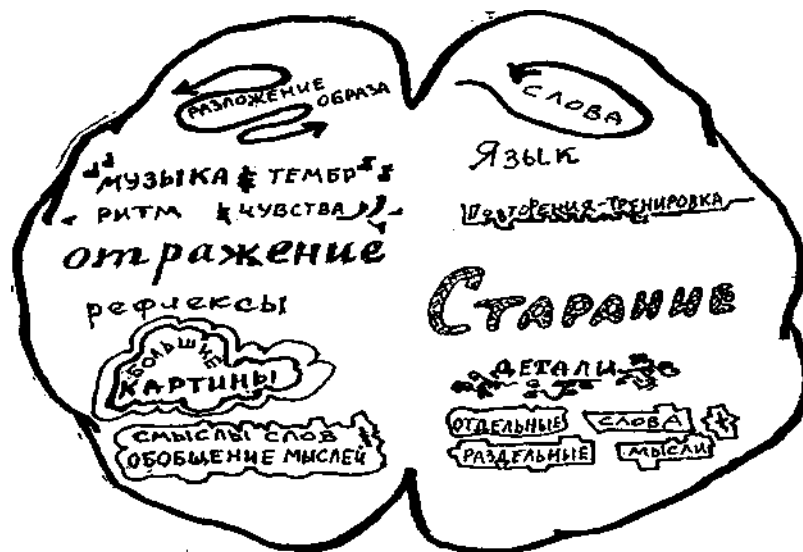 РАЗЛОЖЕНИЕ ОБРАЗА
МУЗЫКА ТЕМБР
РИТМ ЧУВСТВА
отражение
рефлексы
БОЛЬШИЕ
КАРТИНЫ
СМЫСЛЫ СЛОВ
ОБОБЩЕНИЕ МЫСЛЕЙ
СЛОВА
Язык
ПОВТОРЕНИЯ-ТРЕНИРОВКА
СТАРАНИЕ
ДЕТАЛИ
ОТДЕЛЬНЫЕ СЛОВА
РАЗДЕЛЬНЫЕ МЫСЛИ